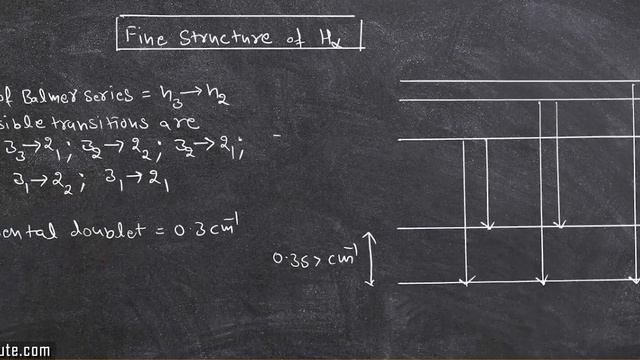 Fine Structure of Hα
of Balmer series = n₃ → n₂
sible transitions are
3₃ → 2₁; 3₂ → 2₂; 3₂ → 2₁;
3₁ → 2₂; 3₁ → 2₁
ental doublet = 0.3 cm⁻¹
0.357 cm⁻¹
ute.com